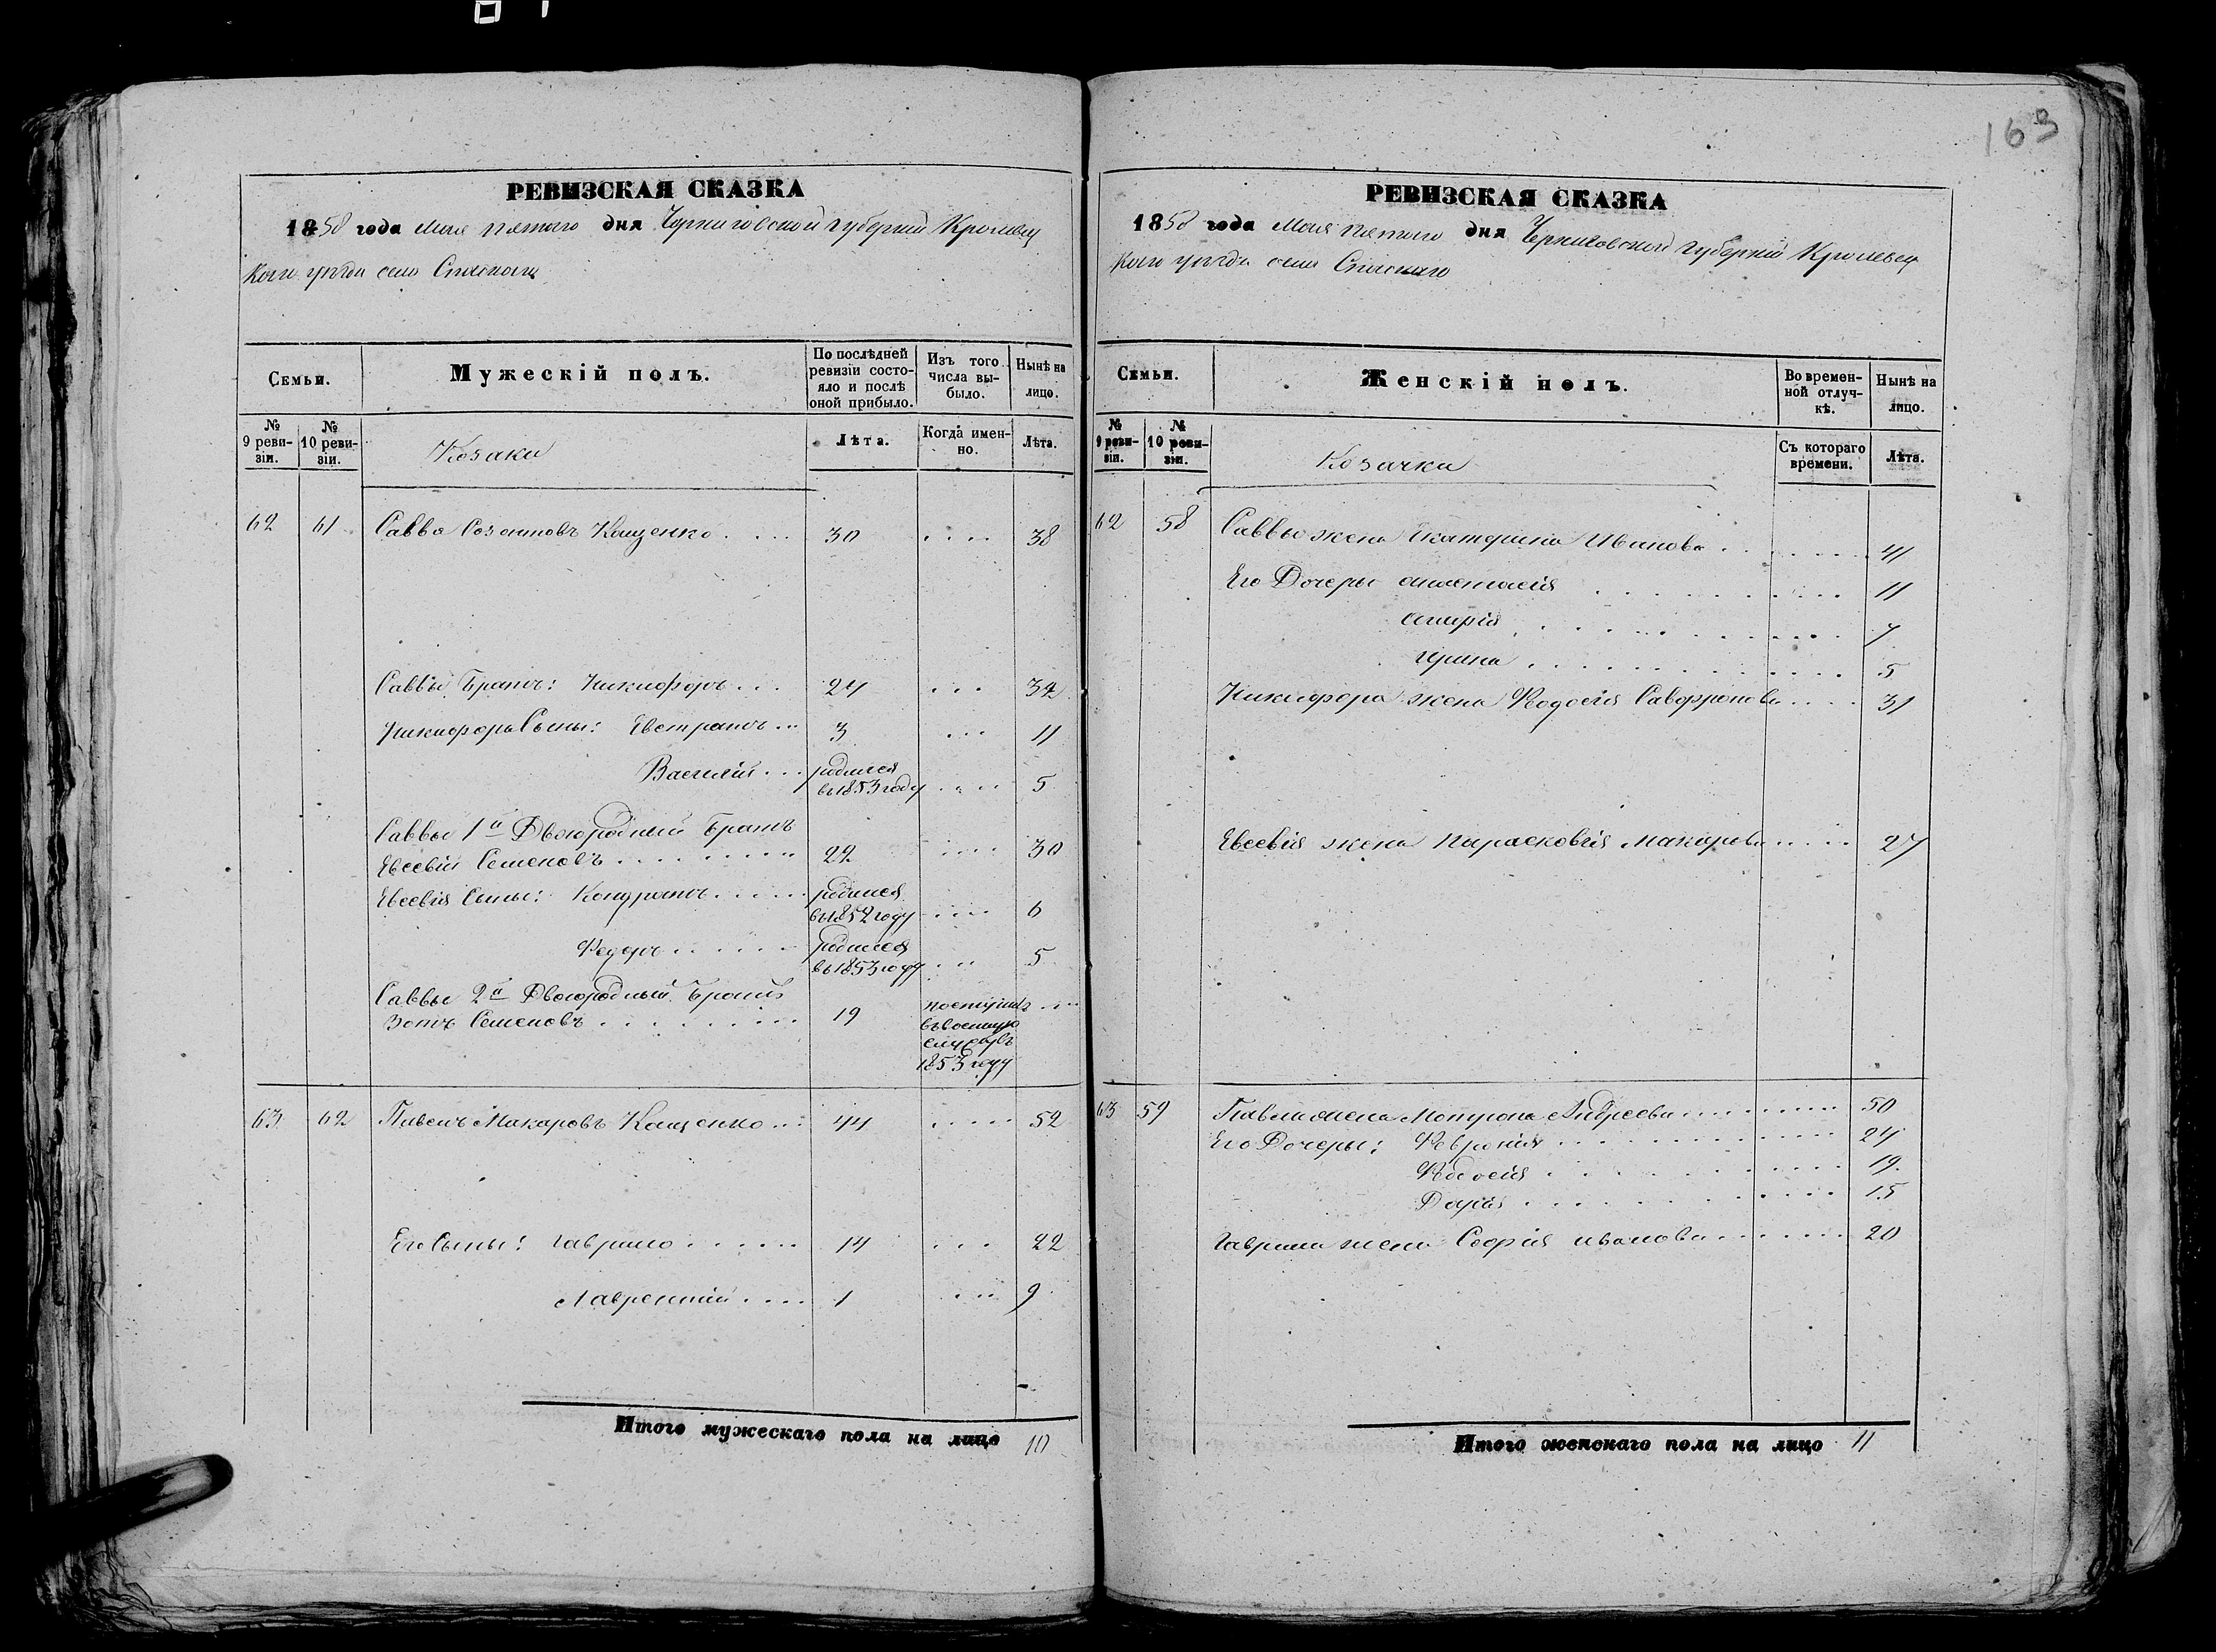 163
РЕВИЗСКАЯ СКАЗКА
1858 года Мая пятого дня Черниговской губерніи Кролевец
кого уезда села Спаского
Семьи.
Мужескій полъ.
По послѣдней ревизіи состояло и послѣ оной прибыло.
Изъ того числа выбыло.
Нынѣ на лицо.
№ 9 ревизіи.
№ 10 ревизіи.
Козаки
Лѣта.
Когда именно.
Лѣта.
62 61 Савва Созонтовъ Кащенко 30 38
Саввы Братъ: Никифоръ 24 32
Никифора Сыны: Евстратъ 3 11
Василій родился въ 1853 году 5
Саввы 1й Двоюродный Братъ
Евсевій Семеновъ 22 30
Евсевія Сыны: Кондратъ родился въ 1852 году 6
Федоръ родился въ 1853 году 5
Саввы 2й Двоюродный Братъ
Зотъ Семеновъ 19 поступилъ въ военную службу въ 1853 году
63 62 Павелъ Макаровъ Кащенко 44 52
Его Сыны: Гаврило 14 22
Лаврентій 1 9
Итого мужескаго пола на лицо 10
РЕВИЗСКАЯ СКАЗКА
1858 года Мая пятого дня Черниговской губерніи Кролевец
кого уезда села Спаского
Семьи.
Женскій полъ.
Во временной отлучкѣ.
Нынѣ на лицо.
№ 9 ревизіи.
№ 10 ревизіи.
Козачки
Съ котораго времени.
Лѣта.
62 58 Саввы жена Екатерина Иванова 41
Его Дочеры Анастасія 11
Марія 7
Ирина 5
Никифора жена Феодосія Савфронова 31
Евсевія жена Парасковія Макарова 27
63 59 Павла жена Мотрона Андреева 50
Его Дочеры: Феврония 24
Феодосія 19
Дарія 15
Гаврила жена Софія Иванова 20
Итого женскаго пола на лицо 11